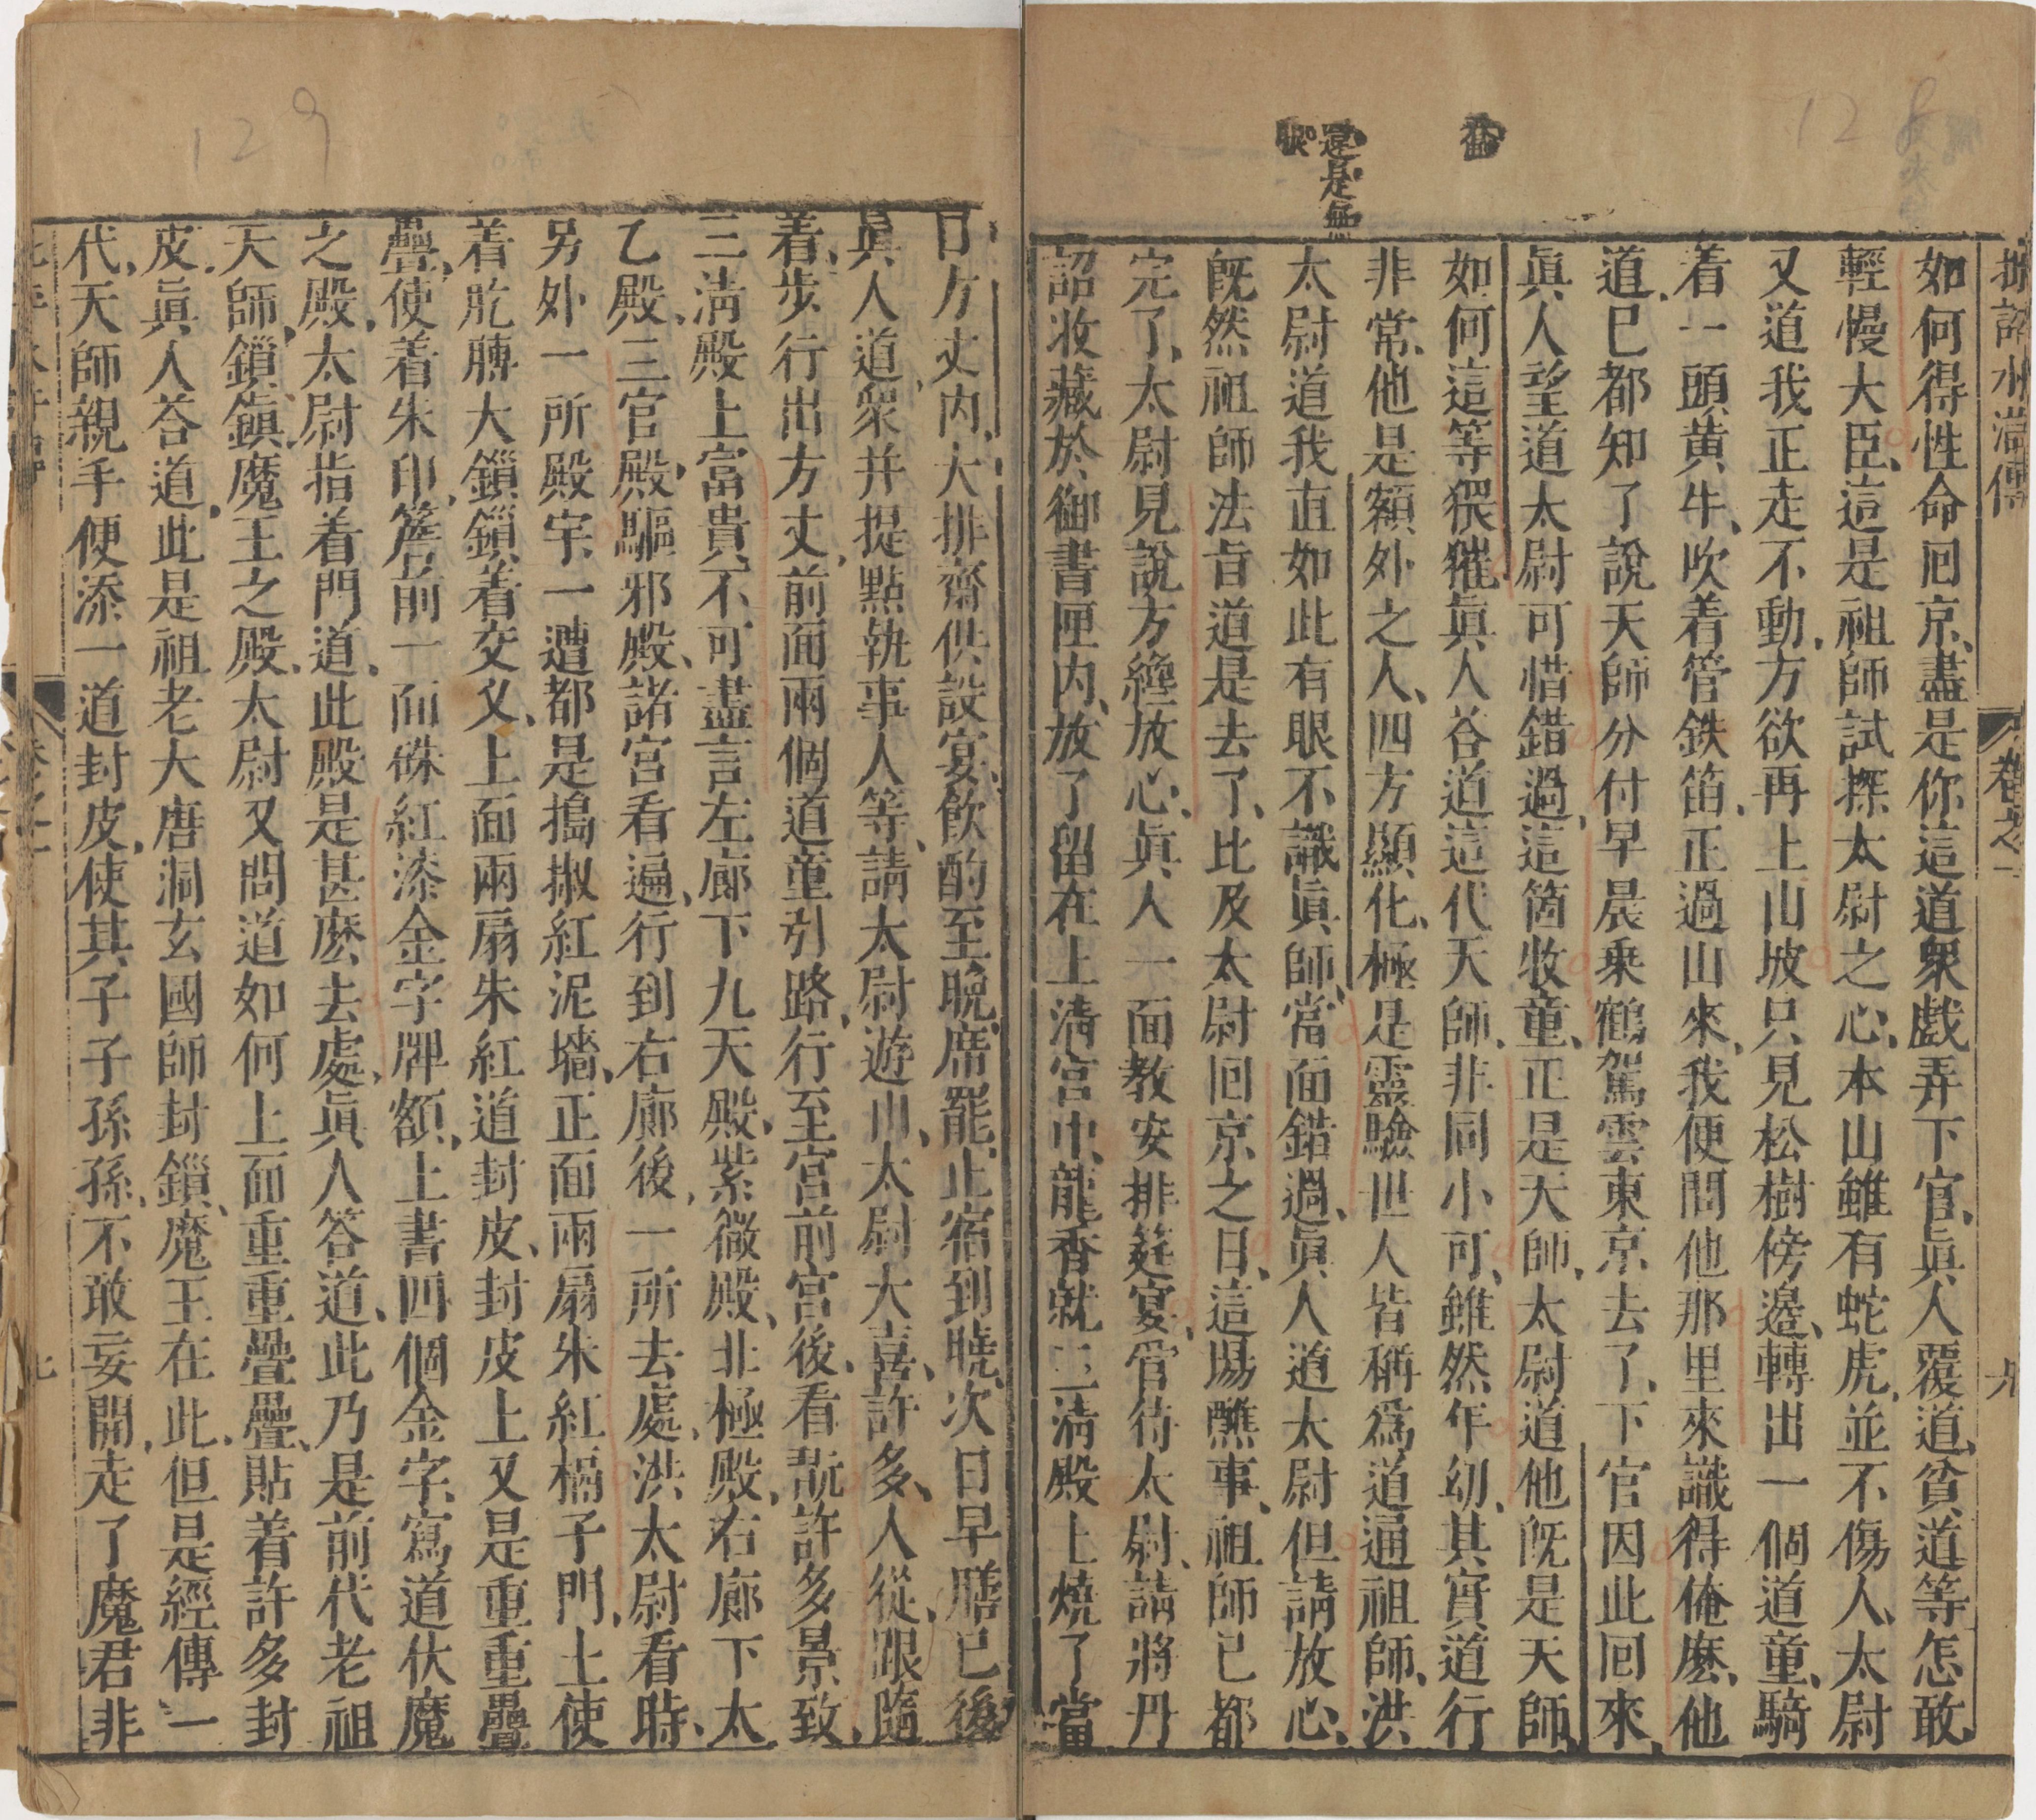 128
畨
還是無
眼
批評水滸傳
卷之一
九
如何得性命回京、盡是你這道衆戲弄下官、眞人覆道、貧道等怎敢
輕慢大臣、這是祖師試探太尉之心、本山雖有蛇虎、並不傷人、太尉
又道我正走不動、方欲再上山坡只見松樹傍邊、轉出一個道童、騎
着一頭黄牛、吹着管鉄笛、正過山來、我便問他那里來識得俺麽、他
道、已都知了說天師分付早晨乗鶴駕雲東京去了、下官因此回來、
眞人望道太尉可惜錯過、這箇牧童、正是天師、太尉道他旣是天師、
如何這等猥獕、眞人荅道這代天師、非同小可、雖然年幼、其實道行
非常、他是額外之人、四方顯化、極是靈驗世人皆稱爲道通祖師、洪
太尉道我直如此有眼不識眞師、當面錯過、眞人道太尉但請放心、
旣然祖師法旨道是去了、比及太尉回京之日、這場醮事、祖師已都
完了、太尉見說方纔放心、眞人一面教安排筵宴、管待太尉、請將丹
詔收藏於御書匣内、放了留在上清宮中、龍香就三清殿上燒了當
129
日方丈内、大排齋供、設宴飲酌、至晚席罷、止宿到曉、次日早膳已後
眞人道衆并提點執事人等、請太尉遊山、太尉大喜、許多人從、跟隨
着、步行出方丈、前面兩個道童引路、行至宮前宮後、看翫許多景致、
三清殿上富貴不可盡言左廊下九天殿、紫微殿、北極殿、右廊下太
乙殿、三官殿、驅邪殿、諸宮看遍、行到右廊後、一所去處、洪太尉看時、
另外一所殿宇、一遭都是搗椒紅泥墻、正面兩扇朱紅槅子門、上使
着肐膊大鎖鎖着交叉、上面兩扇朱紅道封皮、封皮上又是重重疊
疊、使着朱印、簷前一面硃紅漆金字牌額、上書四個金字、寫道伏魔
之殿、太尉指着門道、此殿是甚麽去處、眞人答道、此乃是前代老祖
天師、鎖鎮魔王之殿、太尉又問道如何上面重重疊疊、貼着許多封
皮、眞人荅道、此是祖老大唐洞玄國師封鎖、魔王在此、但是經傳一
代、天師親手便添一道封皮、使其子子孫孫、不敢妄開、走了魔君非